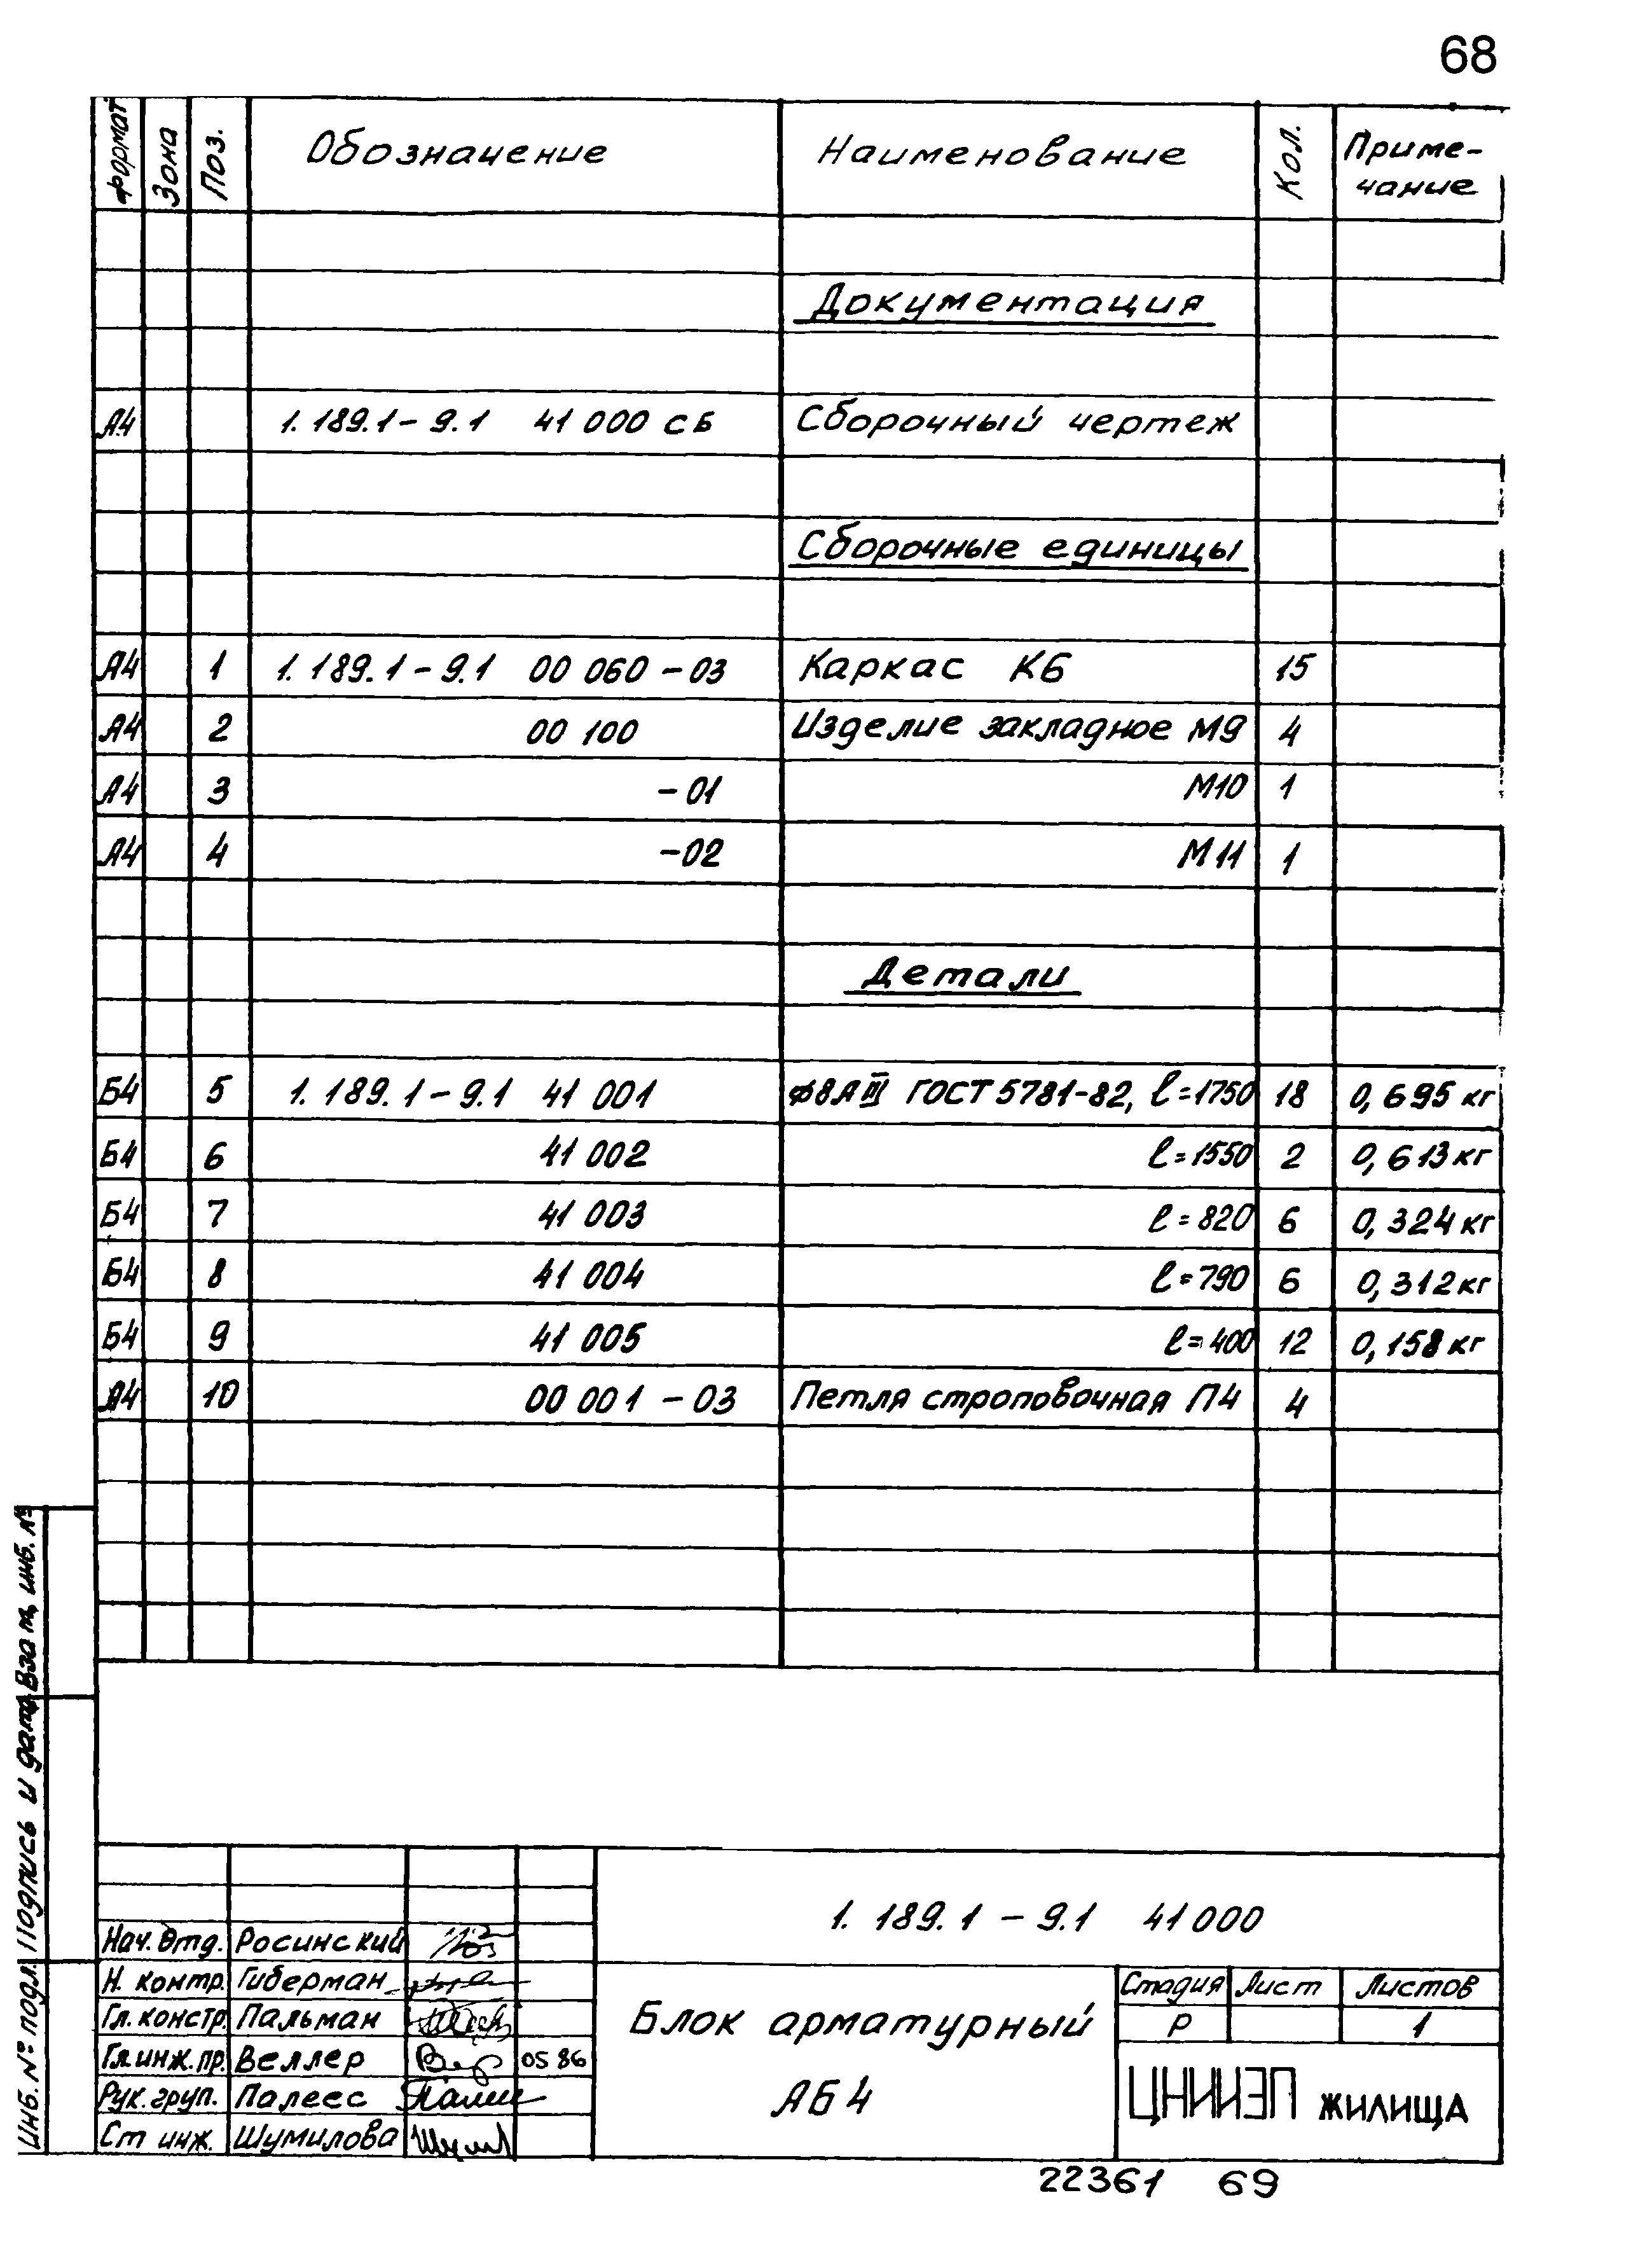 68
Формат Зона Поз. Обозначение Наименование Кол. Приме-
чание
Документация
А4 1.189.1-9.1 41 000 СБ Сборочный чертеж
Сборочные единицы
А4 1 1.189.1-9.1 00 060-03 Каркас К6 15
А4 2 00 100 Изделие закладное М9 4
А4 3 -01 М10 1
А4 4 -02 М11 1
Детали
Б4 5 1.189.1-9.1 41 001 ф8АIII ГОСТ 5781-82, ℓ=1750 18 0,695 кг
Б4 6 41 002 ℓ=1550 2 0,613 кг
Б4 7 41 003 ℓ=820 6 0,324 кг
Б4 8 41 004 ℓ=790 6 0,312 кг
Б4 9 41 005 ℓ=400 12 0,158 кг
А4 10 00 001-03 Петля строповочная П4 4
Инв. № подл. Подпись и дата Взам. инв. №
1.189.1-9.1 41 000
Нач. отд. Росинский
Н. контр. Гиберман
Гл. констр. Пальман
Гл. инж. пр. Веллер 05 86
Рук. груп. Палеес
Ст инж. Шумилова
Блок арматурный
АБ4
Стадия Лист Листов
Р 1
ЦНИИЭП жилища
22361 69